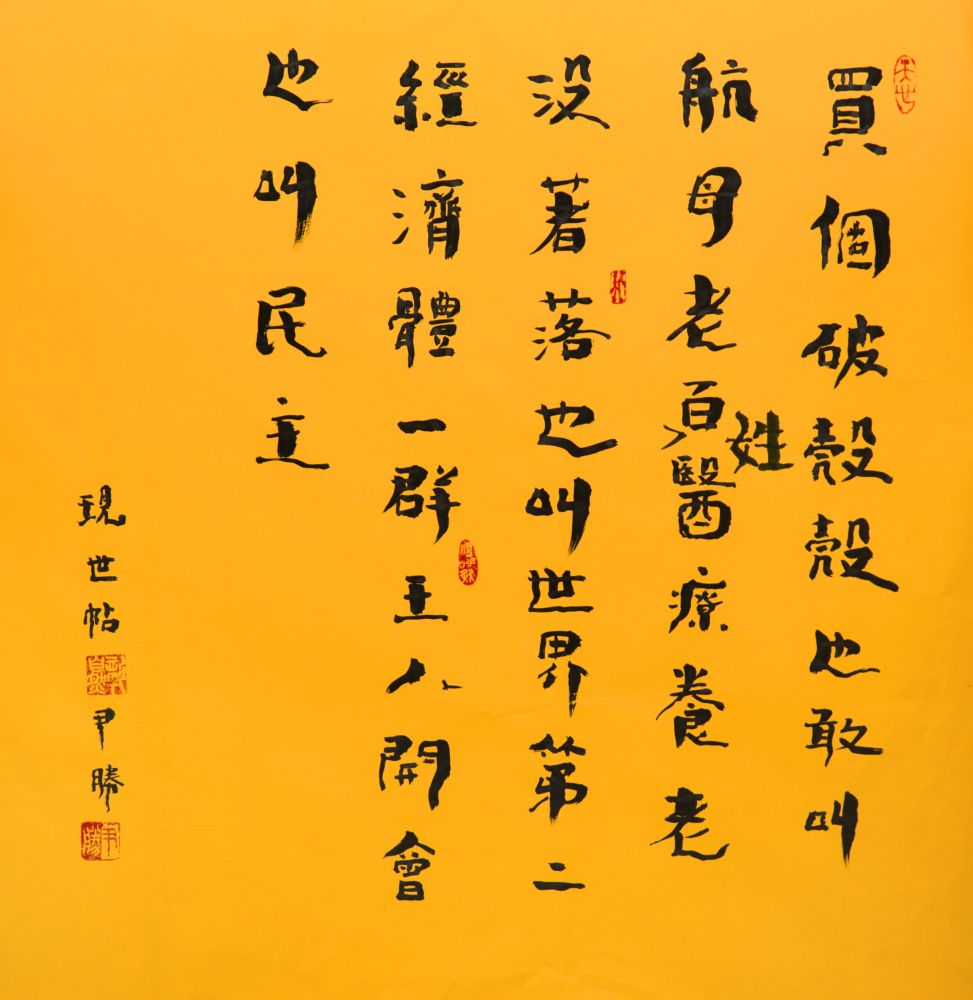 買個破殼殼也敢叫
航母老百姓醫療養老
没著落也叫世界第二
經濟體一群主人開會
也叫民主
現世帖
尹勝
尹勝